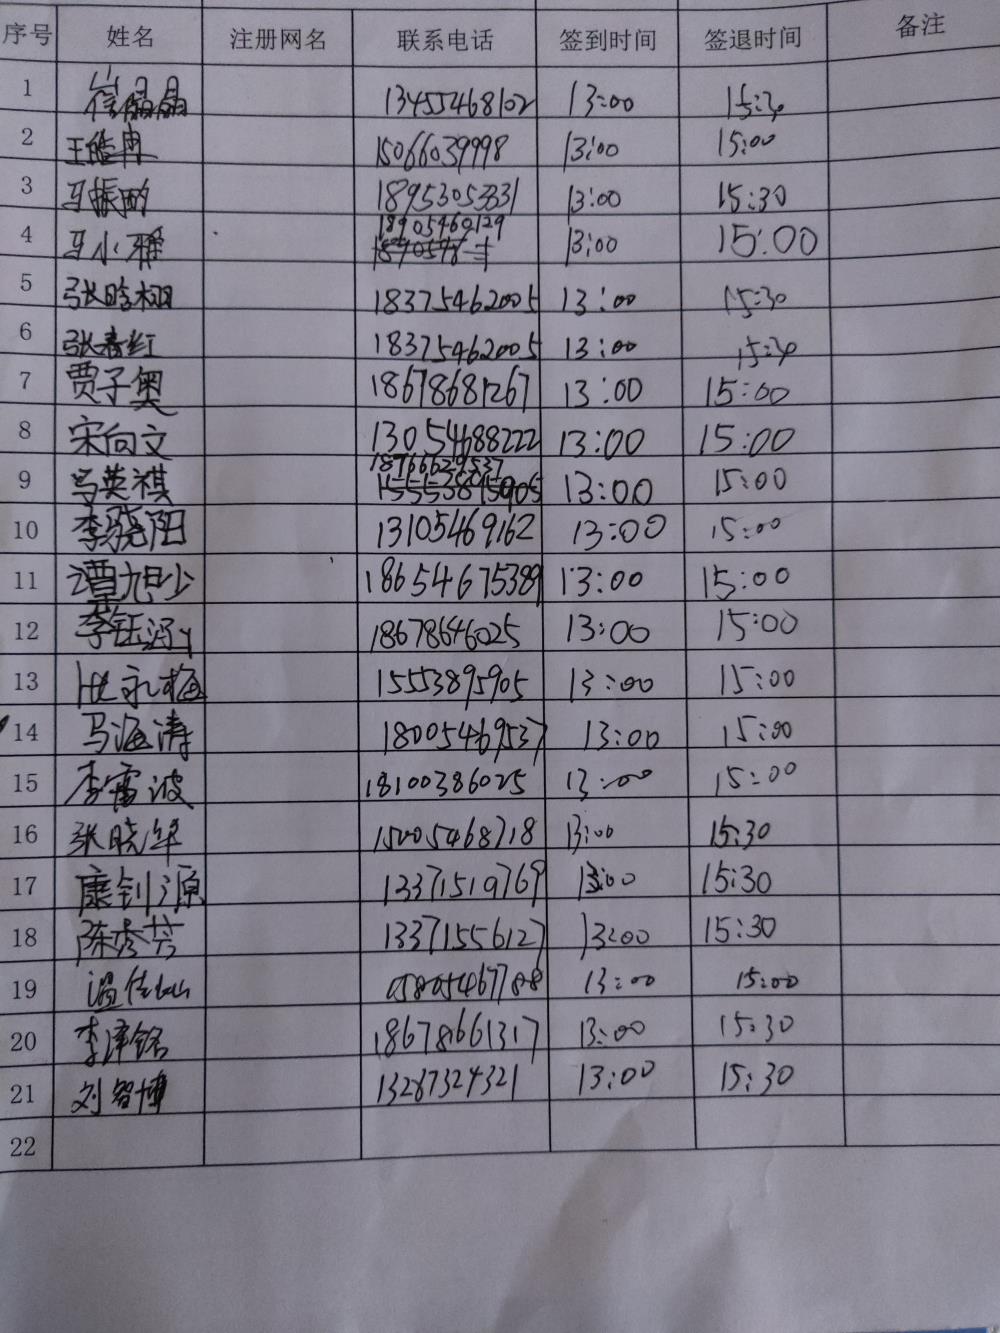 序号 姓名 注册网名 联系电话 签到时间 签退时间 备注
1 崔晶晶 13455468102 13:00 15:30
2 王皓冉 15066039998 13:00 15:00
3 马振 13:00 15:30
4 马小雅 18905460129 13:00 15:00
5 张晗栩 18375462005 13:00 15:30
6 张春红 18375462005 13:00 15:30
7 贾子奥 18678681267 13:00 15:00
8 宋向文 13054688222 13:00 15:00
9 马英祺 18766629537 13:00 15:00
10 李骁阳 13105469162 13:00 15:00
11 谭旭少 18654675389 13:00 15:00
12 李钰涵 18678646025 13:00 15:00
13 永梅 15553895905 13:00 15:00
14 马海涛 18005469537 13:00 15:00
15 李雷波 18100386025 13:00 15:00
16 张晓华 15005468718 13:00 15:30
17 康钊源 13371519769 13:00 15:30
18 陈秀芳 13371556127 13:00 15:30
19 温 13:00 15:00
20 李泽铭 18678661317 13:00 15:30
21 刘智博 13287324321 13:00 15:30
22